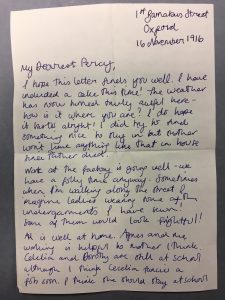 1st Street
Oxford
16 November 1916
My Dearest Percy,
I hope this letter finds you well. I have
included a cake this time! The weather
has now turned fairly awful here -
how is it where you are? I do hope
it holds alright! I did try to find
something nice to put in but mother
won't have anything like that in house
since Father died.
Work at the factory is going well - we
have a jolly time anyway. Sometimes
when I'm walking along the street I
imagine ladies wearing some of my
undergarments. I have sewn
some of them would look frightful!!
All is well at home. Agnes and me
working is helpful to mother (I think
Cecelia and Dorothy are still at school
although I think Cecelia
soon. I think she should stay at school